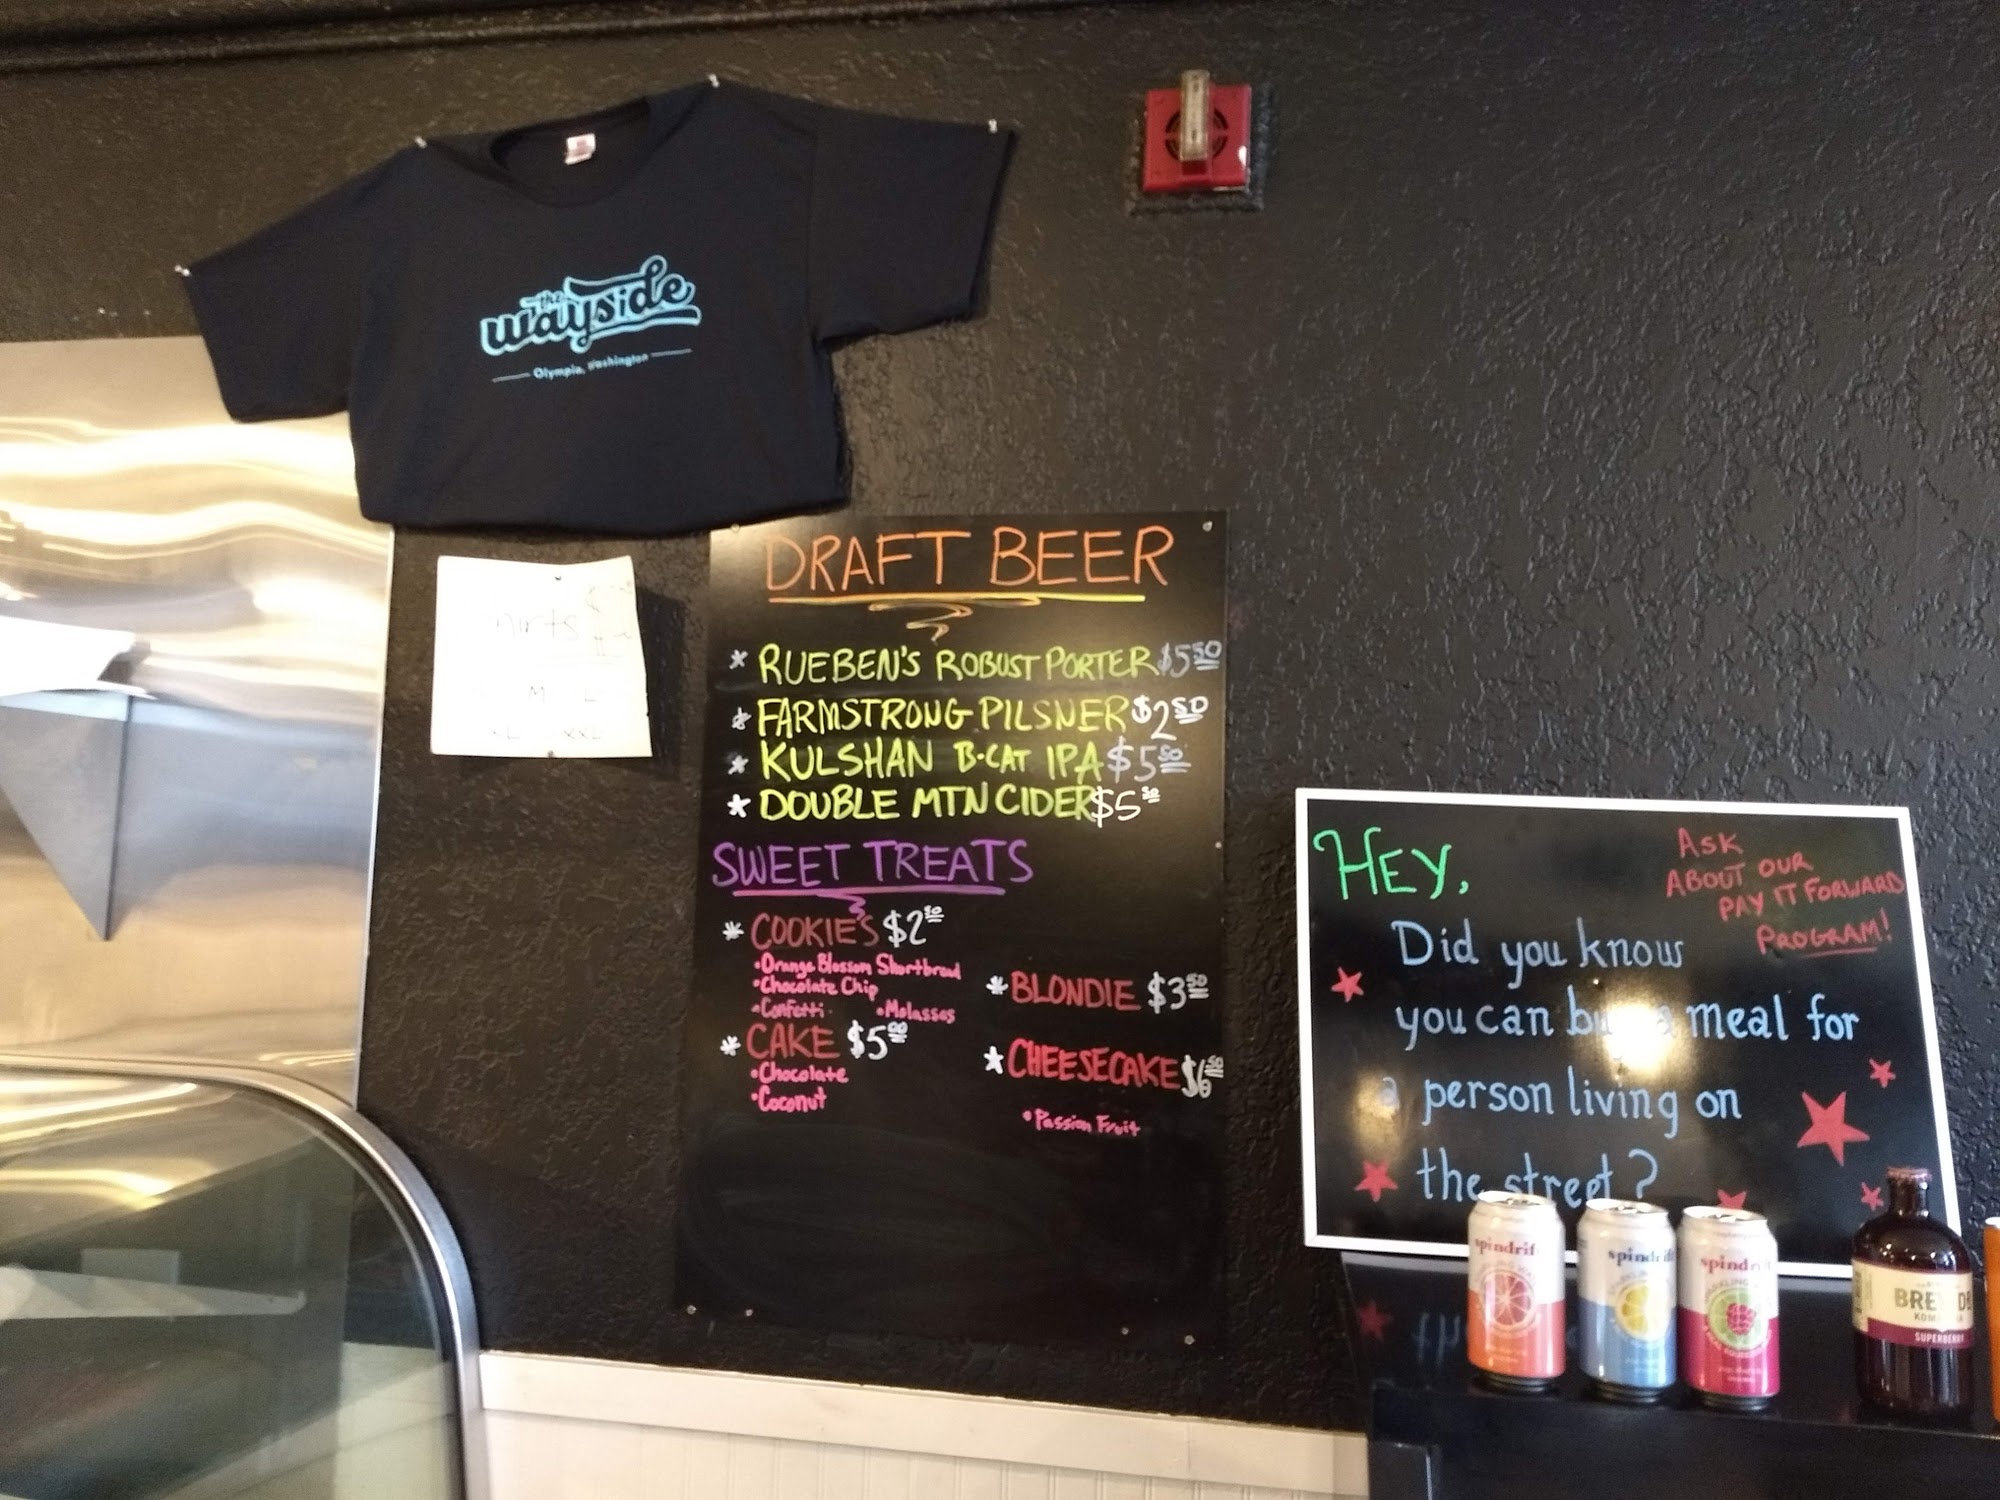 the
wayside
Olympia, Washington
hirts
M L
XL XXL
DRAFT BEER
* RUEBEN'S ROBUST PORTER $5.50
* FARMSTRONG PILSNER $2.50
* KULSHAN B-CAT IPA $5.50
* DOUBLE MTN CIDER $5.50
SWEET TREATS
* COOKIE'S $2.50
• Orange Blossom Shortbread
• Chocolate Chip
• Confetti • Molasses
* CAKE $5.00
• Chocolate
• Coconut
* BLONDIE $3.50
* CHEESECAKE $6.50
• Passion Fruit
HEY,
ASK
ABOUT OUR
PAY IT FORWARD
PROGRAM!
Did you know
you can buy a meal for
a person living on
the street?
spindrif
spindrift
spindrift
BREWDR
KOMBUCHA
SUPERBERRY